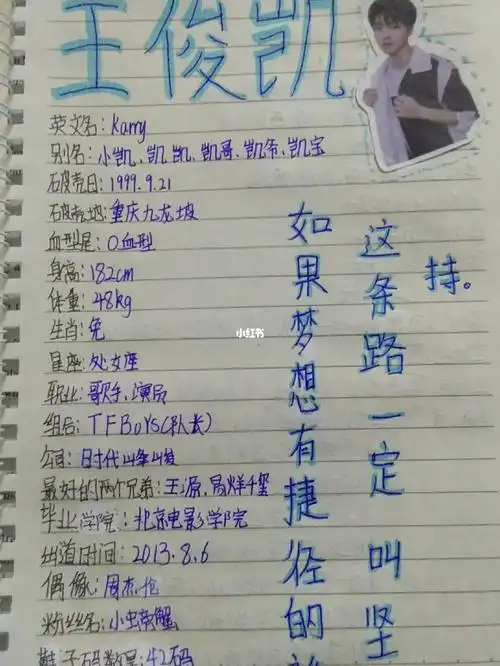 王俊凯
英文名：Karry
别名：小凯、凯凯、凯哥、凯爷、凯宝
破壳日：1999.9.21
破壳地：重庆九龙坡
血型是：O血型
身高：182cm
体重：48kg
生肖：兔
星座：处女座
职业：歌手、演员
组合：TFBOYS（队长）
公司：时代峰峻
最好的两个兄弟：王源、易烊千玺
毕业学院：北京电影学院
出道时间：2013.8.6
偶像：周杰伦
粉丝名：小螃蟹
鞋子码数是：42码
如果梦想有捷径的
这条路一定叫坚
持。
小红书